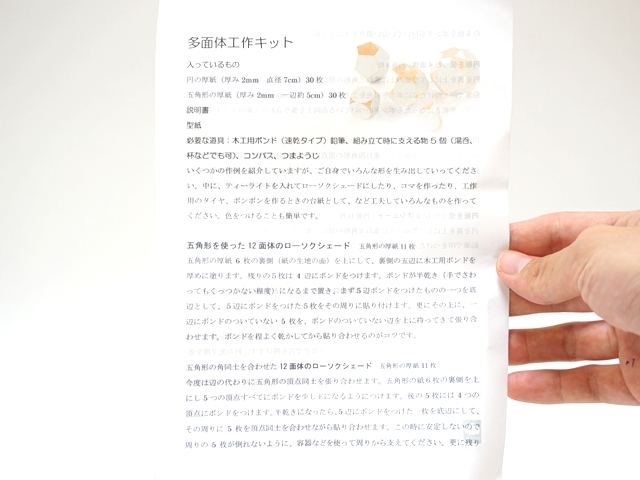 多面体工作キット
入っているもの
円の厚紙（厚み2mm　直径7cm）30枚
五角形の厚紙（厚み2mm　一辺約5cm）30枚
説明書
型紙
必要な道具：木工用ボンド（速乾タイプ）鉛筆、組み立て時に支える物5個（湯呑、
杯などでも可)、コンパス、つまようじ
いくつかの作例を紹介していますが、ご自身でいろんな形を生み出していってくださ
い。中に、ティーライトを入れてローソクシェードにしたり、コマを作ったり、工作
用のタイヤ、ボンボンを作るときの台紙として、など工夫していろんなものを作って
ください。色をつけることも簡単です。
五角形を使った12面体のローソクシェード　五角形の厚紙11枚
五角形の厚紙6枚の裏側（紙の生地の面）を上にして、裏側の五辺に木工用ボンドを
厚めに塗ります。残りの5枚は4辺にボンドをつけます。ボンドが半乾き（手でさわ
ってもくっつかない程度）になるまで置き、まず5辺ボンドをつけたものの一つを底
辺として、5辺にボンドをつけた5枚をその周りに貼り付けます。更にその上に、一
辺にボンドのついていない5枚を、ボンドのついていない辺を上に持ってきて張り合
わせます。ボンドを程よく乾かしてから貼り合わせるのがコツです。
五角形の角同士を合わせた12面体のローソクシェード　五角形の厚紙11枚
今度は辺の代わりに五角形の頂点同士を張り合わせます。五角形の紙6枚の裏側を上
にし5つの頂点すべてにボンドを少し上になるようにつけます。後の5枚には4つの
頂点にボンドをつけます。半乾きになったら、5辺にボンドをつけた一枚を底辺にして、
その周りに5枚を頂点同士を合わせながら貼り合わせます。この時に安定しないので
周りの5枚が倒れないように、容器などを使って周りから支えてください。更に残り